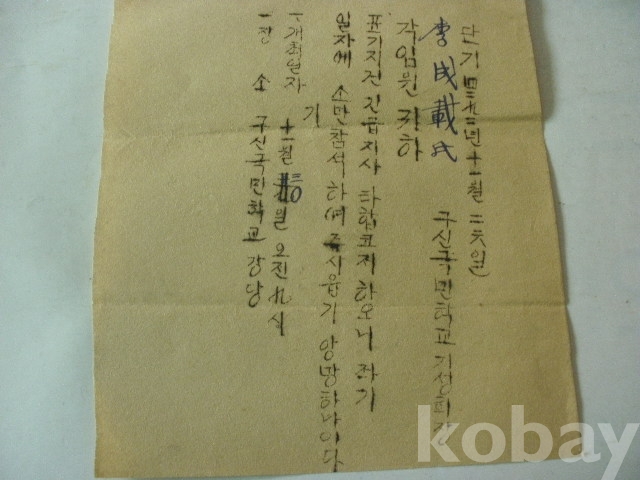 단기 四二九二년 十一월 二六일
구신국민학교 기성회장
李成載氏
각임원 귀하
표기지건 긴급지사 타합코저 하오니 좌기
일자에 소만참석 하여 주시옵기 앙망하나이다
기
一, 개최일자 十一월 三0일 오전 九시
一, 장소 구신국민학교 강당
kobay